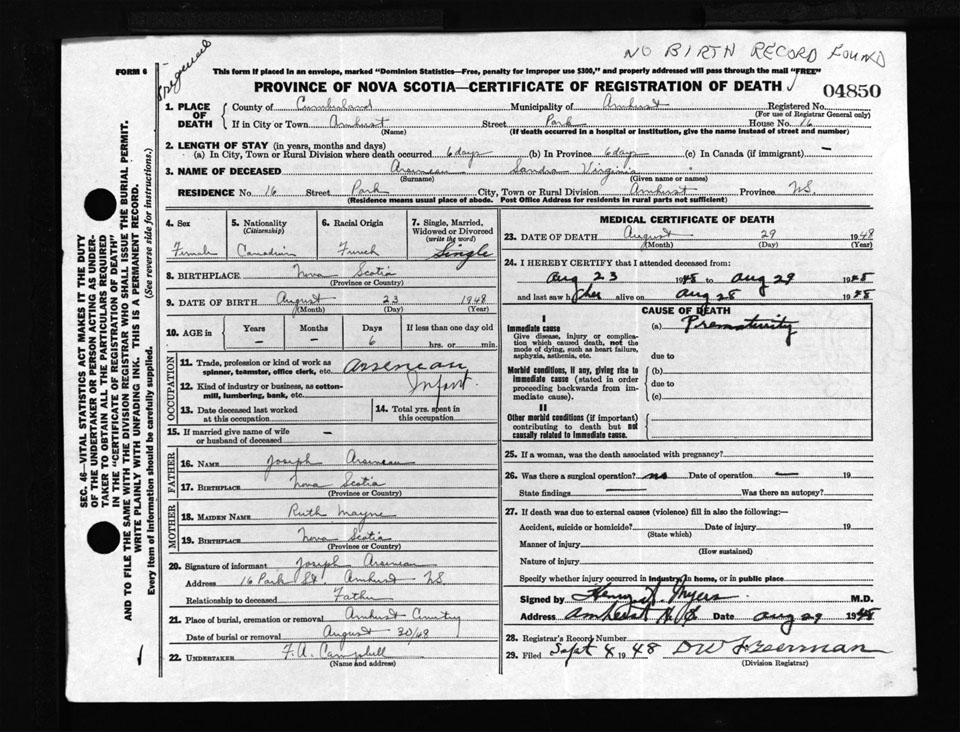 NO BIRTH RECORD FOUND
FORM 6
This form if placed in an envelope, marked "Dominion Statistics—Free, penalty for improper use $300," and properly addressed will pass through the mail "FREE"
PROVINCE OF NOVA SCOTIA—CERTIFICATE OF REGISTRATION OF DEATH
04850
1. PLACE OF DEATH
County of Cumberland Municipality of Amherst Registered No.
(For use of Registrar General only)
If in City or Town Amherst Street Park House No. 16
(Name) (If death occurred in a hospital or institution, give the name instead of street and number)
2. LENGTH OF STAY (in years, months and days)
(a) In City, Town or Rural Division where death occurred 6 days (b) In Province 6 days (c) In Canada (if immigrant) —
3. NAME OF DECEASED Arseneau Sandra Virginia
(Surname) (Given name or names)
RESIDENCE No 16 Street Park City, Town or Rural Division Amherst Province N.S.
(Residence means usual place of abode. Post Office Address for residents in rural parts not sufficient)
4. Sex
Female
5. Nationality
(Citizenship)
Canadian
6. Racial Origin
French
7. Single, Married,
Widowed or Divorced
(write the word)
Single
8. BIRTHPLACE Nova Scotia
(Province or Country)
9. DATE OF BIRTH August 23 1948
(Month) (Day) (Year)
10. AGE in
Years Months Days If less than one day old
— — 6 hrs. or min.
OCCUPATION
11. Trade, profession or kind of work as
spinner, teamster, office clerk, etc. Arseneau
12. Kind of industry or business, as cotton-
mill, lumbering, bank, etc. Infant.
13. Date deceased last worked
at this occupation
14. Total yrs. spent in
this occupation
15. If married give name of wife
or husband of deceased —
FATHER
16. NAME Joseph Arseneau
17. BIRTHPLACE Nova Scotia
(Province or Country)
MOTHER
18. MAIDEN NAME Ruth Mayne
19. BIRTHPLACE Nova Scotia
(Province or Country)
20. Signature of informant Joseph Arseneau
Address 16 Park St. Amherst NS
Relationship to deceased Father
21. Place of burial, cremation or removal Amherst Cemetery
Date of burial or removal August 30/48
22. UNDERTAKER F. A. Campbell
(Name and address)
MEDICAL CERTIFICATE OF DEATH
23. DATE OF DEATH August 29 1948
(Month) (Day) (Year)
24. I HEREBY CERTIFY that I attended deceased from:
Aug 23 1948 to Aug 29 1948
and last saw her alive on Aug 28 1948
CAUSE OF DEATH
I
Immediate cause
Give disease, injury or complica-
tion which caused death, not the
mode of dying, such as heart failure,
asphyxia, asthenia, etc.
(a) Prematurity
due to
Morbid conditions, if any, giving rise to
immediate cause (stated in order
proceeding backwards from im-
mediate cause).
(b)
due to
(c)
II
Other morbid conditions (if important)
contributing to death but not
causally related to immediate cause.
25. If a woman, was the death associated with pregnancy?
26. Was there a surgical operation? no Date of operation — 19
State findings — Was there an autopsy?
27. If death was due to external causes (violence) fill in also the following:—
Accident, suicide or homicide? Date of injury 19
(State which)
Manner of injury
(How sustained)
Nature of injury
Specify whether injury occurred in industry, in home, or in public place
Signed by Myers M.D.
Address Amherst N.S. Date Aug 29 1948
28. Registrar's Record Number
29. Filed Sept 4 1948 D W Freeman
(Division Registrar)
SEC. 46—VITAL STATISTICS ACT MAKES IT THE DUTY
OF THE UNDERTAKER OR PERSON ACTING AS UNDER-
TAKER TO OBTAIN ALL THE PARTICULARS REQUIRED
IN THE "CERTIFICATE OF REGISTRATION OF DEATH"
AND TO FILE THE SAME WITH THE DIVISION REGISTRAR WHO SHALL ISSUE THE BURIAL PERMIT.
WRITE PLAINLY WITH UNFADING INK. THIS IS A PERMANENT RECORD.
Every item of information should be carefully supplied. (See reverse side for instructions.)